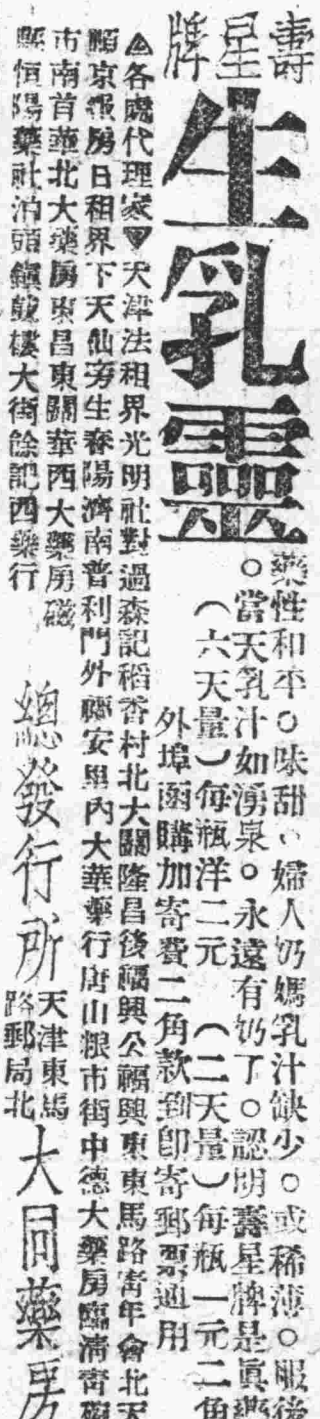 壽星牌
生乳靈
藥性和平。味甜。婦人奶媽乳汁缺少。或稀薄。服後
。當天乳汁如湧泉。永遠有奶了。認明壽星牌是眞藥
（六天量）每瓶洋二元　（二天量）每瓶一元二角
外埠函購加寄費二角款到卽寄郵票通用
▲各處代理家▼天津法租界光明社對過森記稻香村北大關隆昌後福興公福興東東馬路靑年會北天
順京報房日租界下天仙旁生春陽濟南普利門外福安里內大華藥行唐山粮市街中德大藥房臨淸靑碗
市南首華北大藥房東昌東關華西大藥房磁
縣恒陽藥社泊頭鎭鼓樓大街餘記西藥行
總發行所
天津東馬
路郵局北
大同藥房